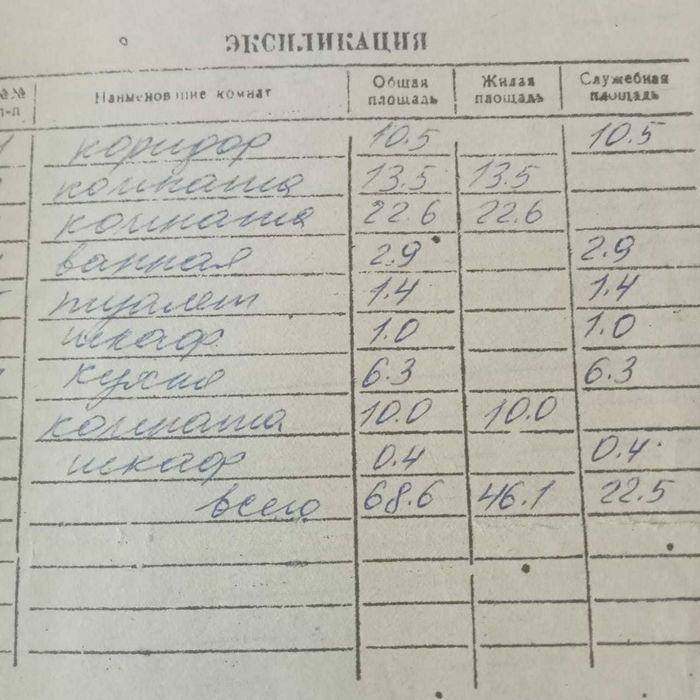 ЭКСПЛИКАЦИЯ
№№ п-п Наименование комнат Общая площадь Жилая площадь Служебная площадь
коридор 10.5 10.5
комната 13.5 13.5
комната 22.6 22.6
ванная 2.9 2.9
туалет 1.4 1.4
шкаф 1.0 1.0
кухня 6.3 6.3
комната 10.0 10.0
шкаф 0.4 0.4
всего 68.6 46.1 22.5